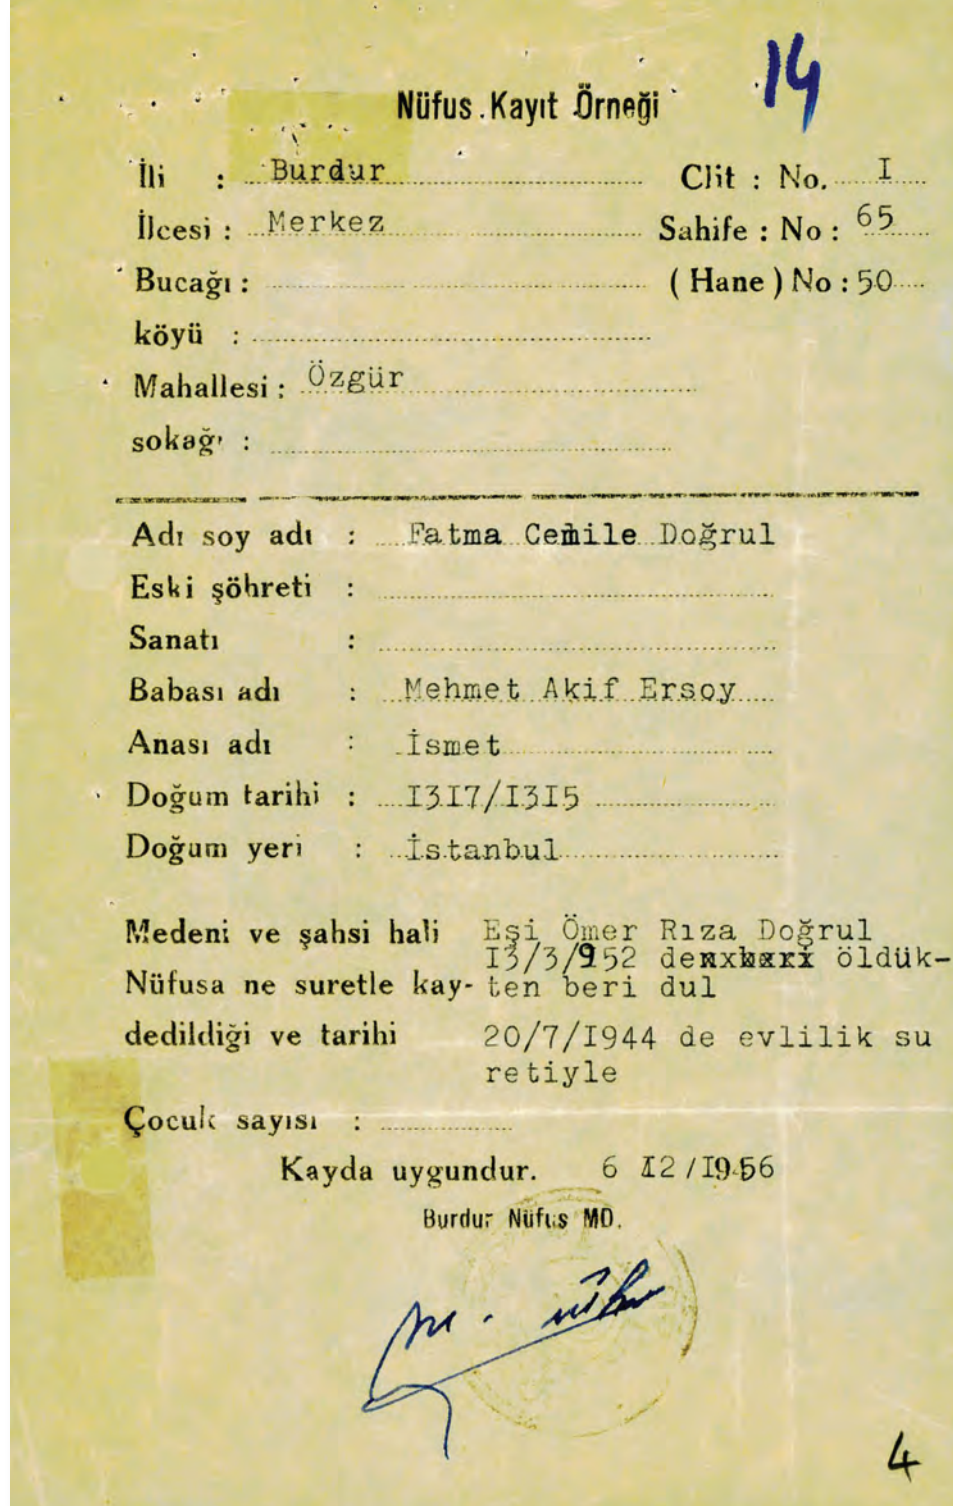 14
Nüfus Kayıt Örneği
İli : Burdur Clit : No. I
İlcesi : Merkez Sahife : No : 65
Bucağı : ( Hane ) No : 50
köyü :
Mahallesi : Özgür
sokağı :
Adı soy adı : Fatma Cemile Doğrul
Eski şöhreti :
Sanatı :
Babası adı : Mehmet Akif Ersoy
Anası adı : İsmet
Doğum tarihi : I3I7/I3I5
Doğum yeri : İstanbul
Medeni ve şahsi hali Eşi Ömer Rıza Doğrul
I3/3/952 de öldük-
Nüfusa ne suretle kay- ten beri dul
dedildiği ve tarihi 20/7/I944 de evlilik su
retiyle
Çocuk sayısı :
Kayda uygundur. 6 I2 /I956
Burdur Nüfus MD.
4